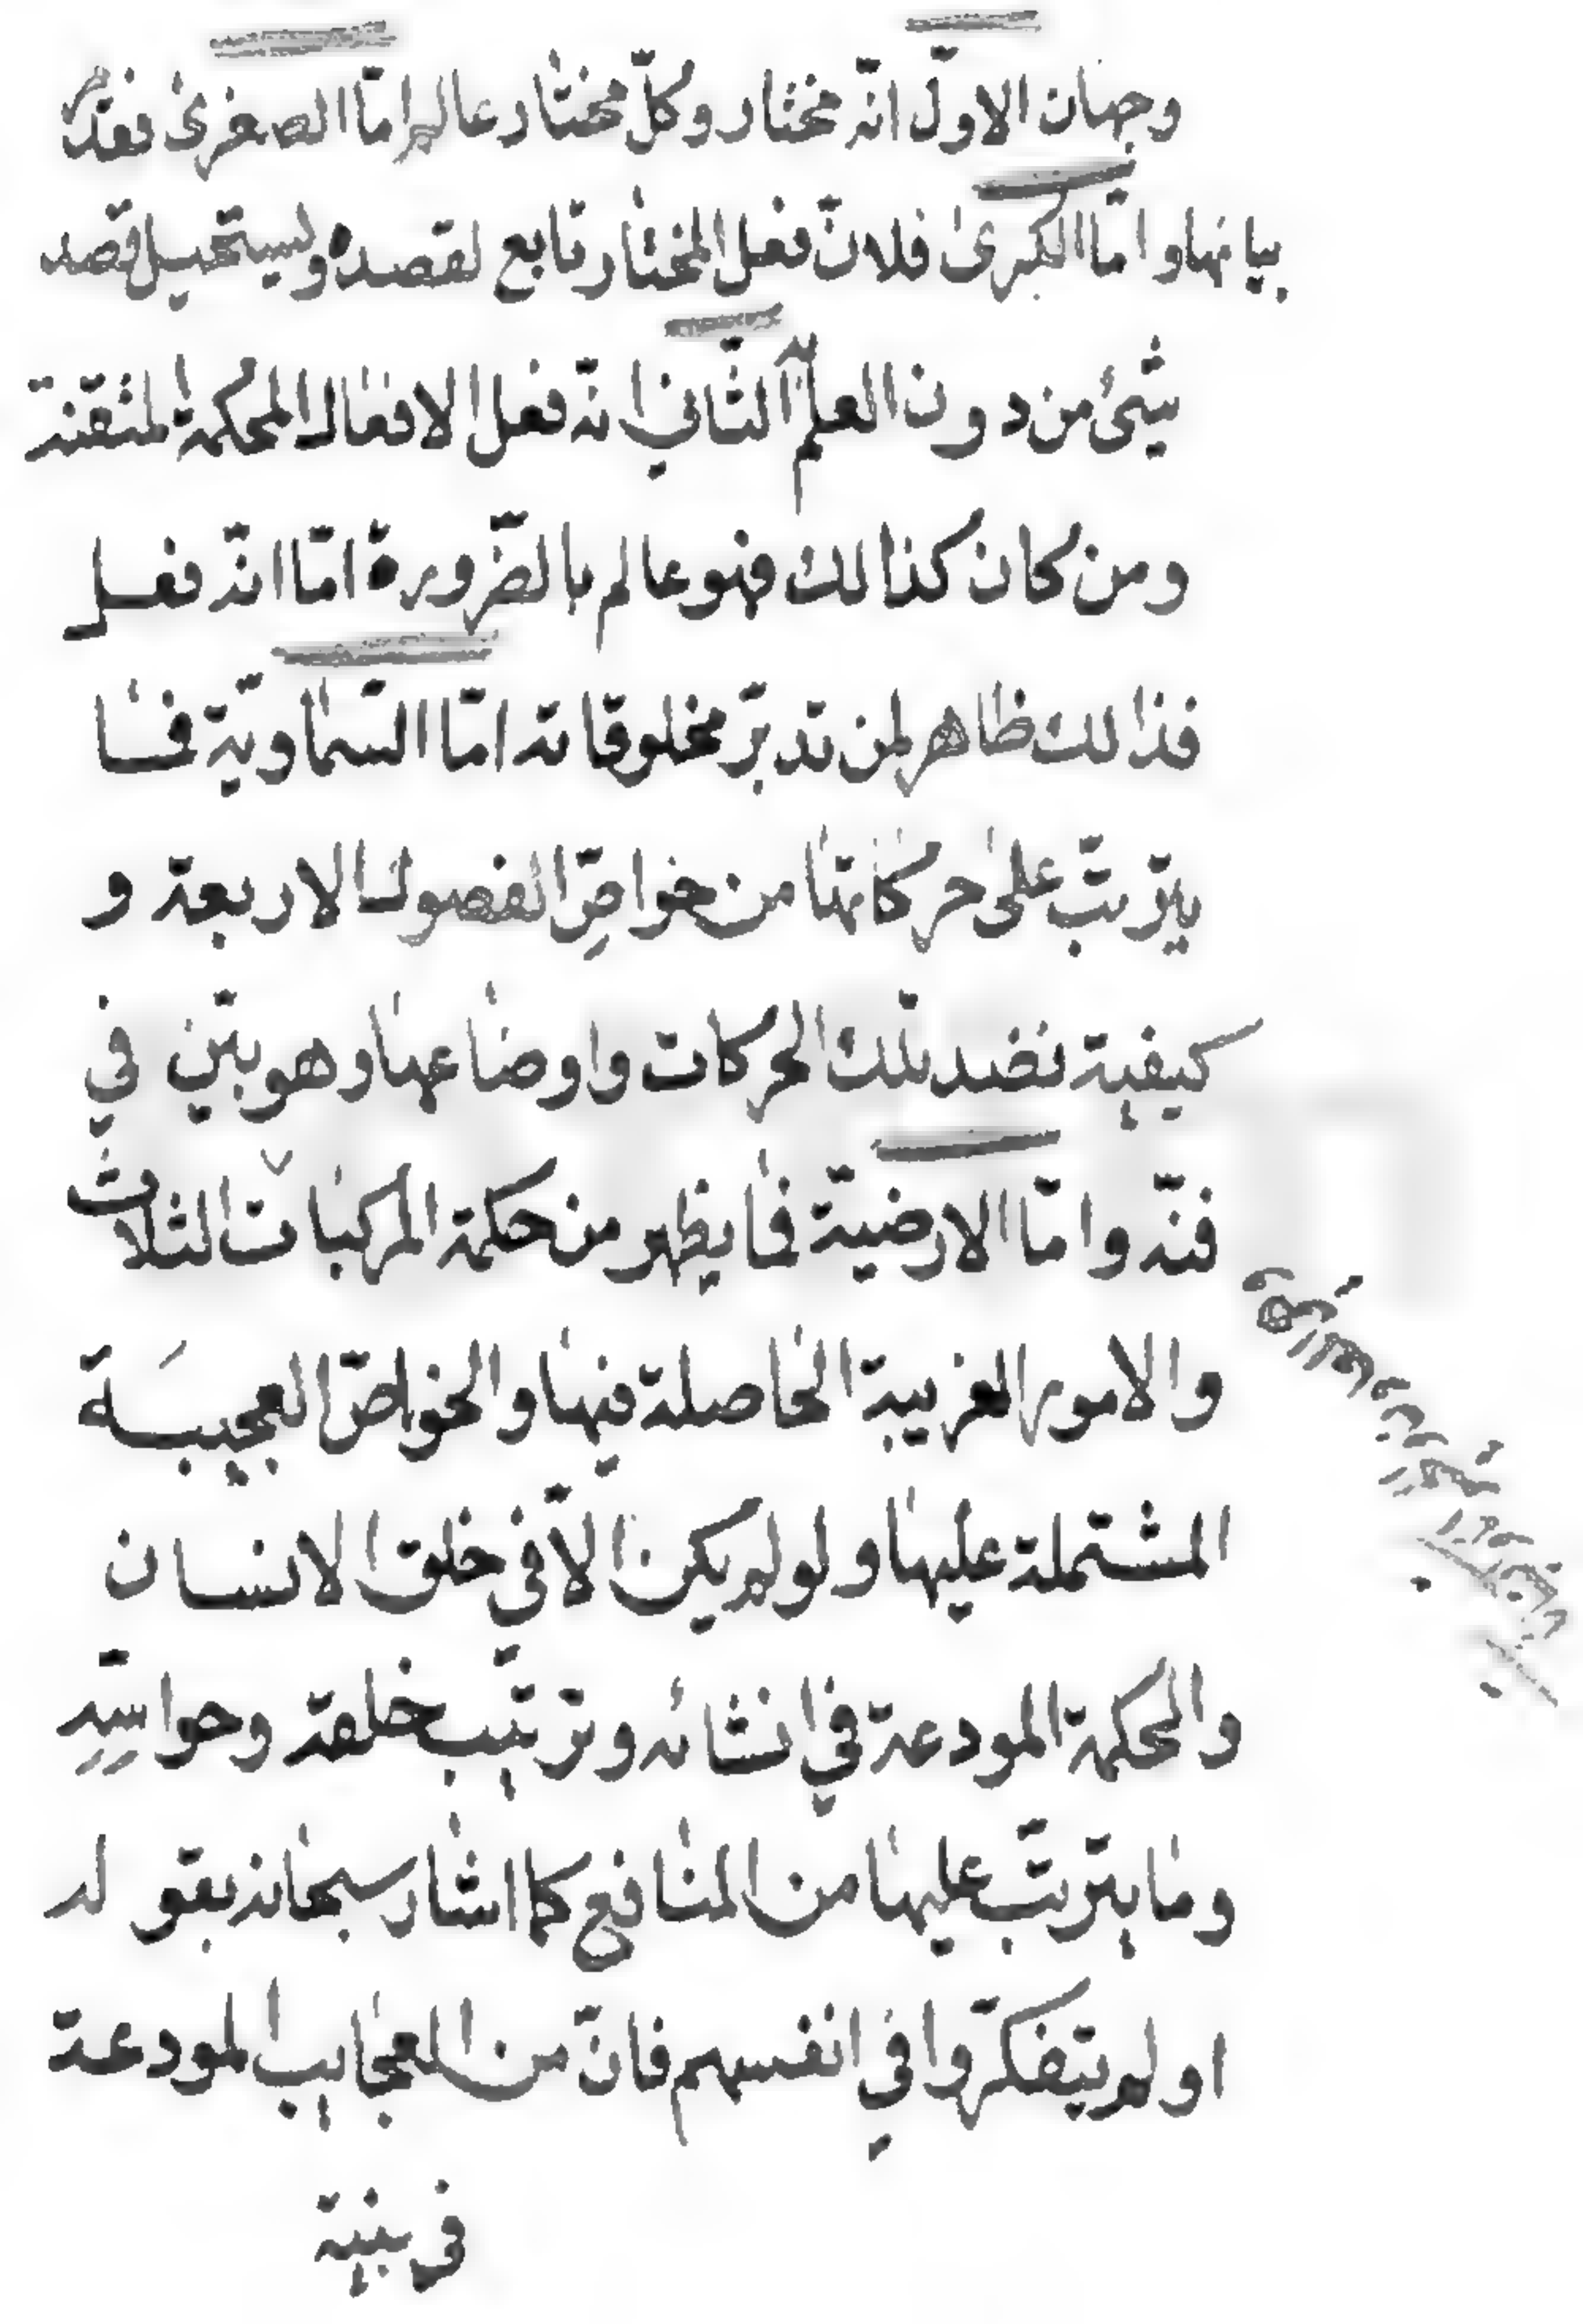 وجهان الاوّل انّه مختار وكلّ مختار عالم امّا الصغرىٰ فقد مرّ
بيانها و امّا الكبرىٰ فلانّ فعل المختٰار تابع لقصده ويستحيل قصد
شئ من دون العلم به الثّاني انّه فعل الافعٰال المحكمة المتقنة
ومن كان كذالك فهو عالم بالضّرورة امّا انّه فعل
فذٰلك ظاهر لمن تدبّر مخلوقاته امّا السّمٰاويّة فمٰا
يترتّب علىٰ حركٰاتهٰا من خواصِّ الفصول الاربعة و
كيفية نضد تلك الحركات واوضٰاعهٰا وهو بيّن في
فنّه وامّا الارضيّة فمٰا يظهر من حكمة المركبٰات الثلاث
والامور الغريبة الحٰاصلة فيهٰا والخوٰاصّ العجيبَة
المشتملة عليهٰا و لو لم يكن الّا في خلق الانسان
والحكمة المودعة في انشائه وترتيب خلقه وحواسِّهِ
ومٰا يترتّب عليهٰا من المنٰافع كمٰا اشٰار سبحٰانه بقوله
اولم يتفكّروا في انفسهم فانّ من العجٰايب المودعة
في بنية